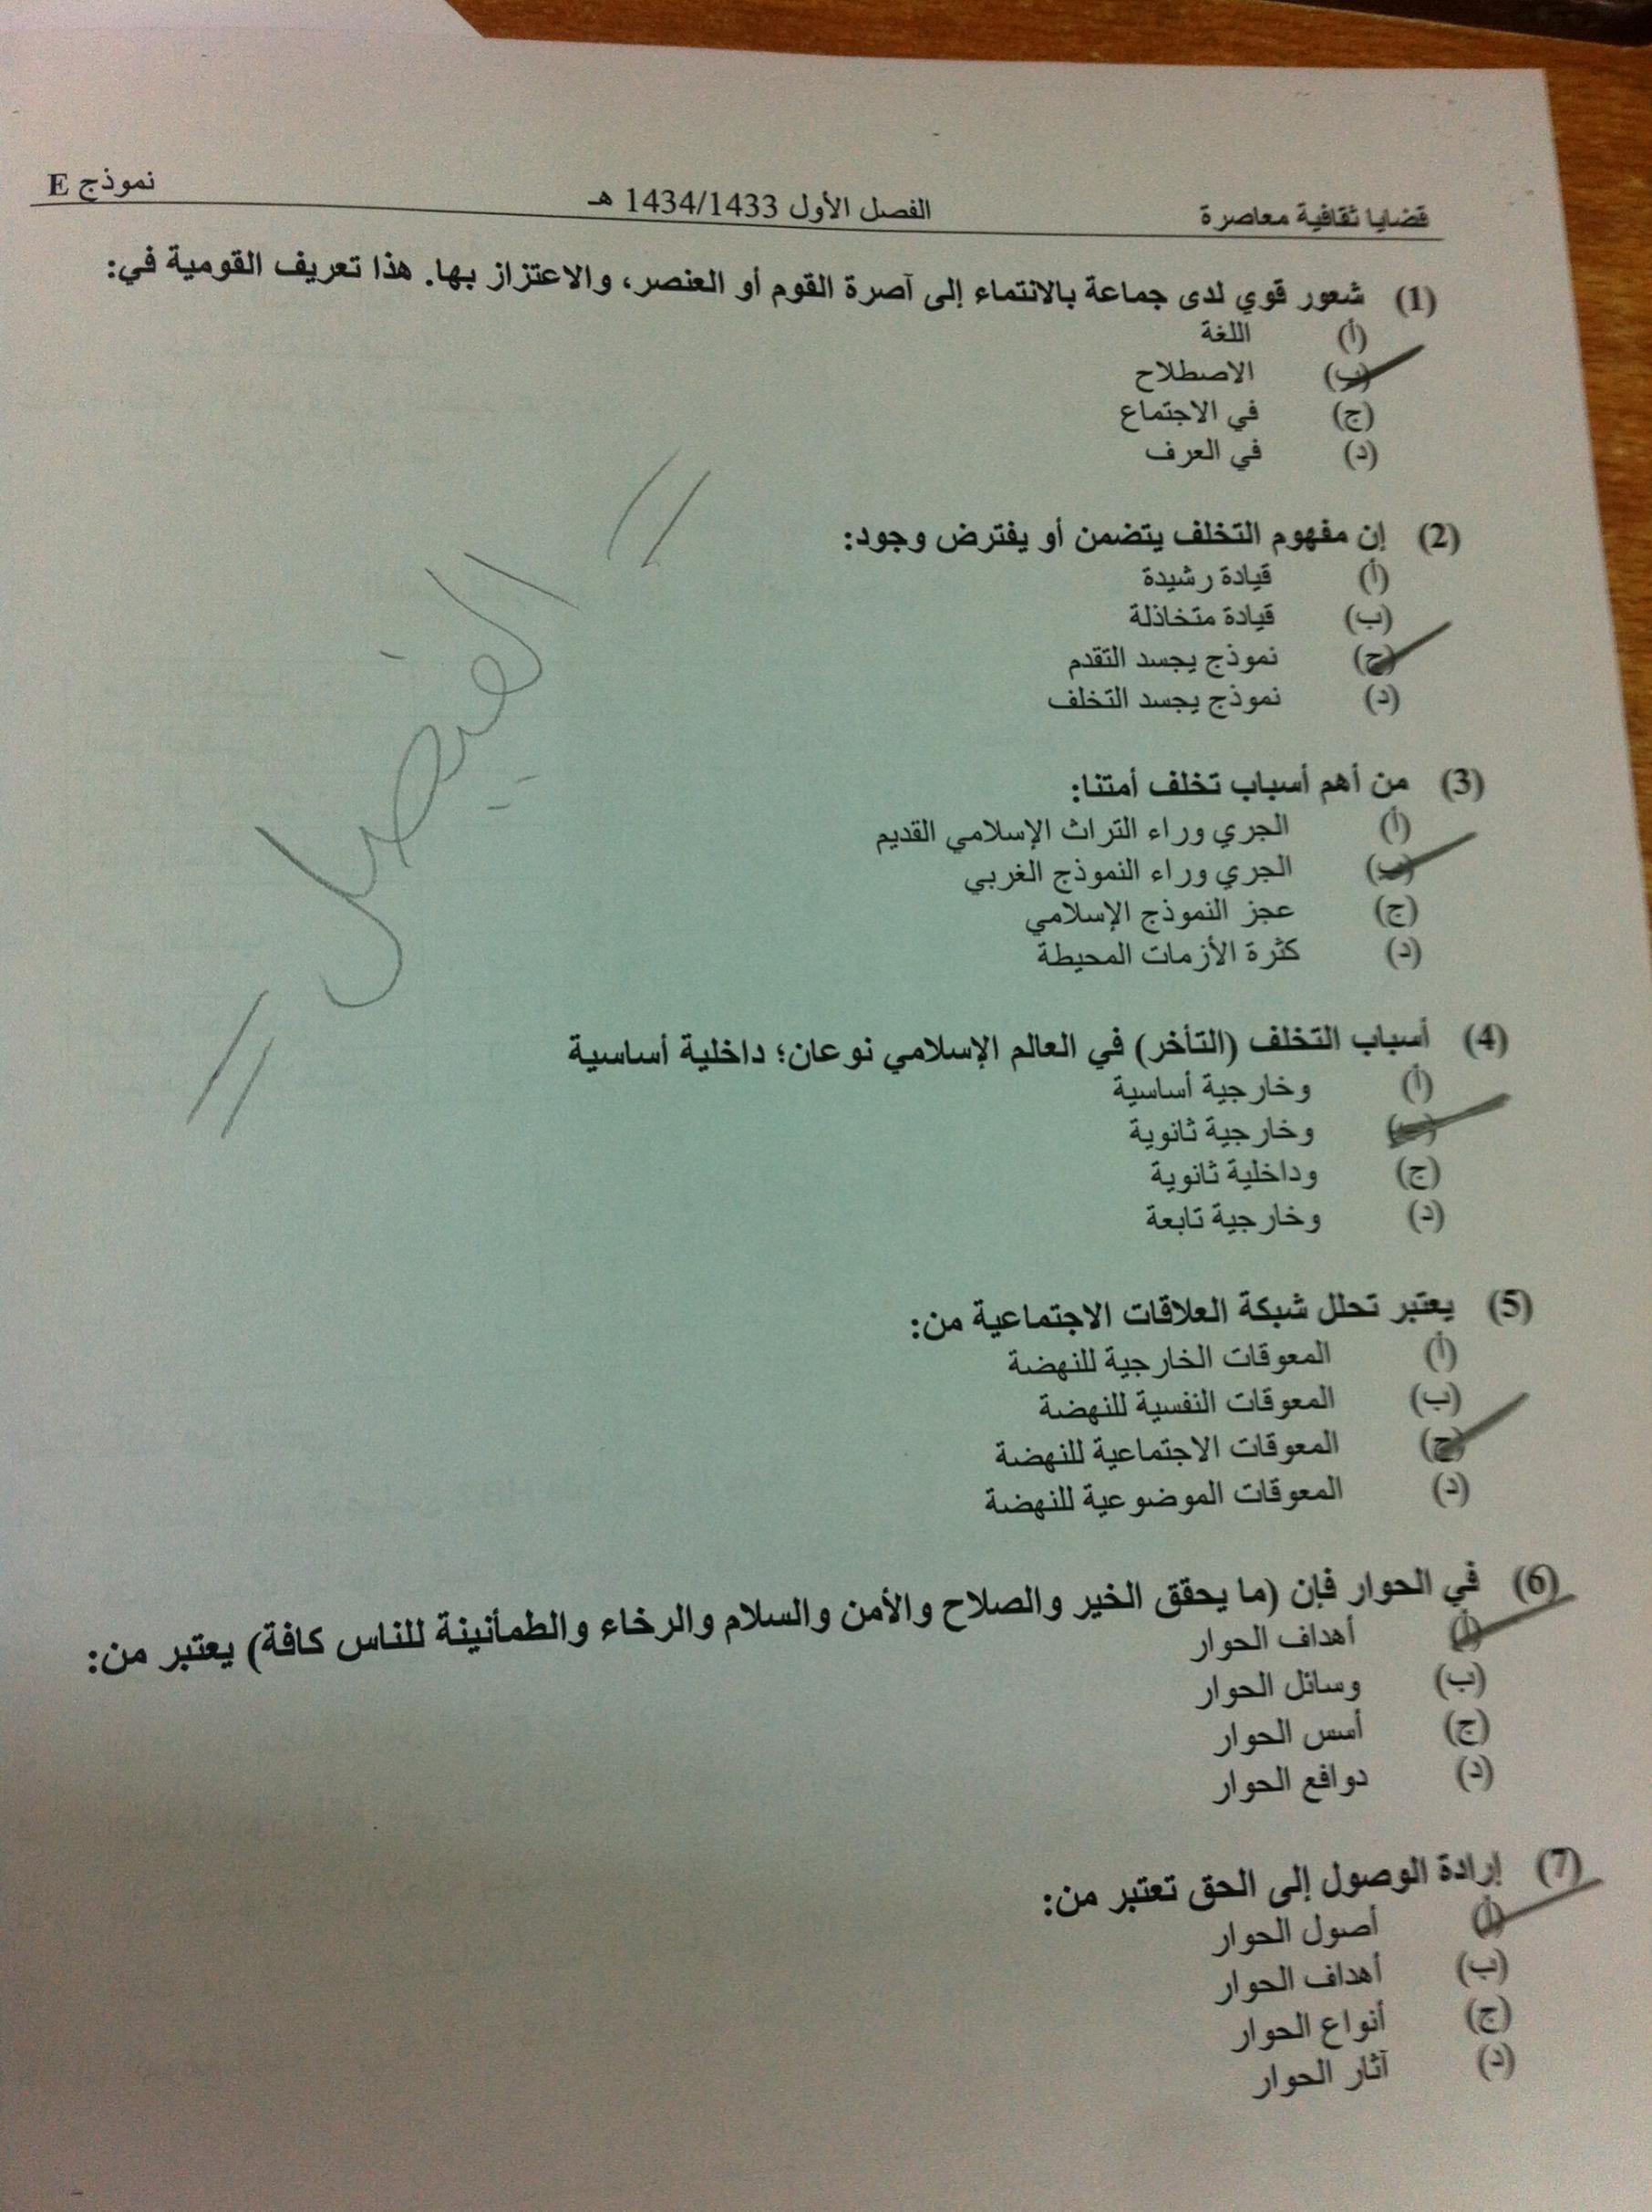 قضايا ثقافية معاصرة الفصل الأول 1434/1433 هـ نموذج E
(1) شعور قوي لدى جماعة بالانتماء إلى آصرة القوم أو العنصر، والاعتزاز بها. هذا تعريف القومية في:
(أ) اللغة
(ب) الاصطلاح
(ج) في الاجتماع
(د) في العرف
(2) إن مفهوم التخلف يتضمن أو يفترض وجود:
(أ) قيادة رشيدة
(ب) قيادة متخاذلة
(ج) نموذج يجسد التقدم
(د) نموذج يجسد التخلف
(3) من أهم أسباب تخلف أمتنا:
(أ) الجري وراء التراث الإسلامي القديم
(ب) الجري وراء النموذج الغربي
(ج) عجز النموذج الإسلامي
(د) كثرة الأزمات المحيطة
(4) أسباب التخلف (التأخر) في العالم الإسلامي نوعان؛ داخلية أساسية
(أ) وخارجية أساسية
(ب) وخارجية ثانوية
(ج) وداخلية ثانوية
(د) وخارجية تابعة
(5) يعتبر تحلل شبكة العلاقات الاجتماعية من:
(أ) المعوقات الخارجية للنهضة
(ب) المعوقات النفسية للنهضة
(ج) المعوقات الاجتماعية للنهضة
(د) المعوقات الموضوعية للنهضة
(6) في الحوار فإن (ما يحقق الخير والصلاح والأمن والسلام والرخاء والطمأنينة للناس كافة) يعتبر من:
(أ) أهداف الحوار
(ب) وسائل الحوار
(ج) أسس الحوار
(د) دوافع الحوار
(7) إرادة الوصول إلى الحق تعتبر من:
(أ) أصول الحوار
(ب) أهداف الحوار
(ج) أنواع الحوار
(د) آثار الحوار
// الفيصل //